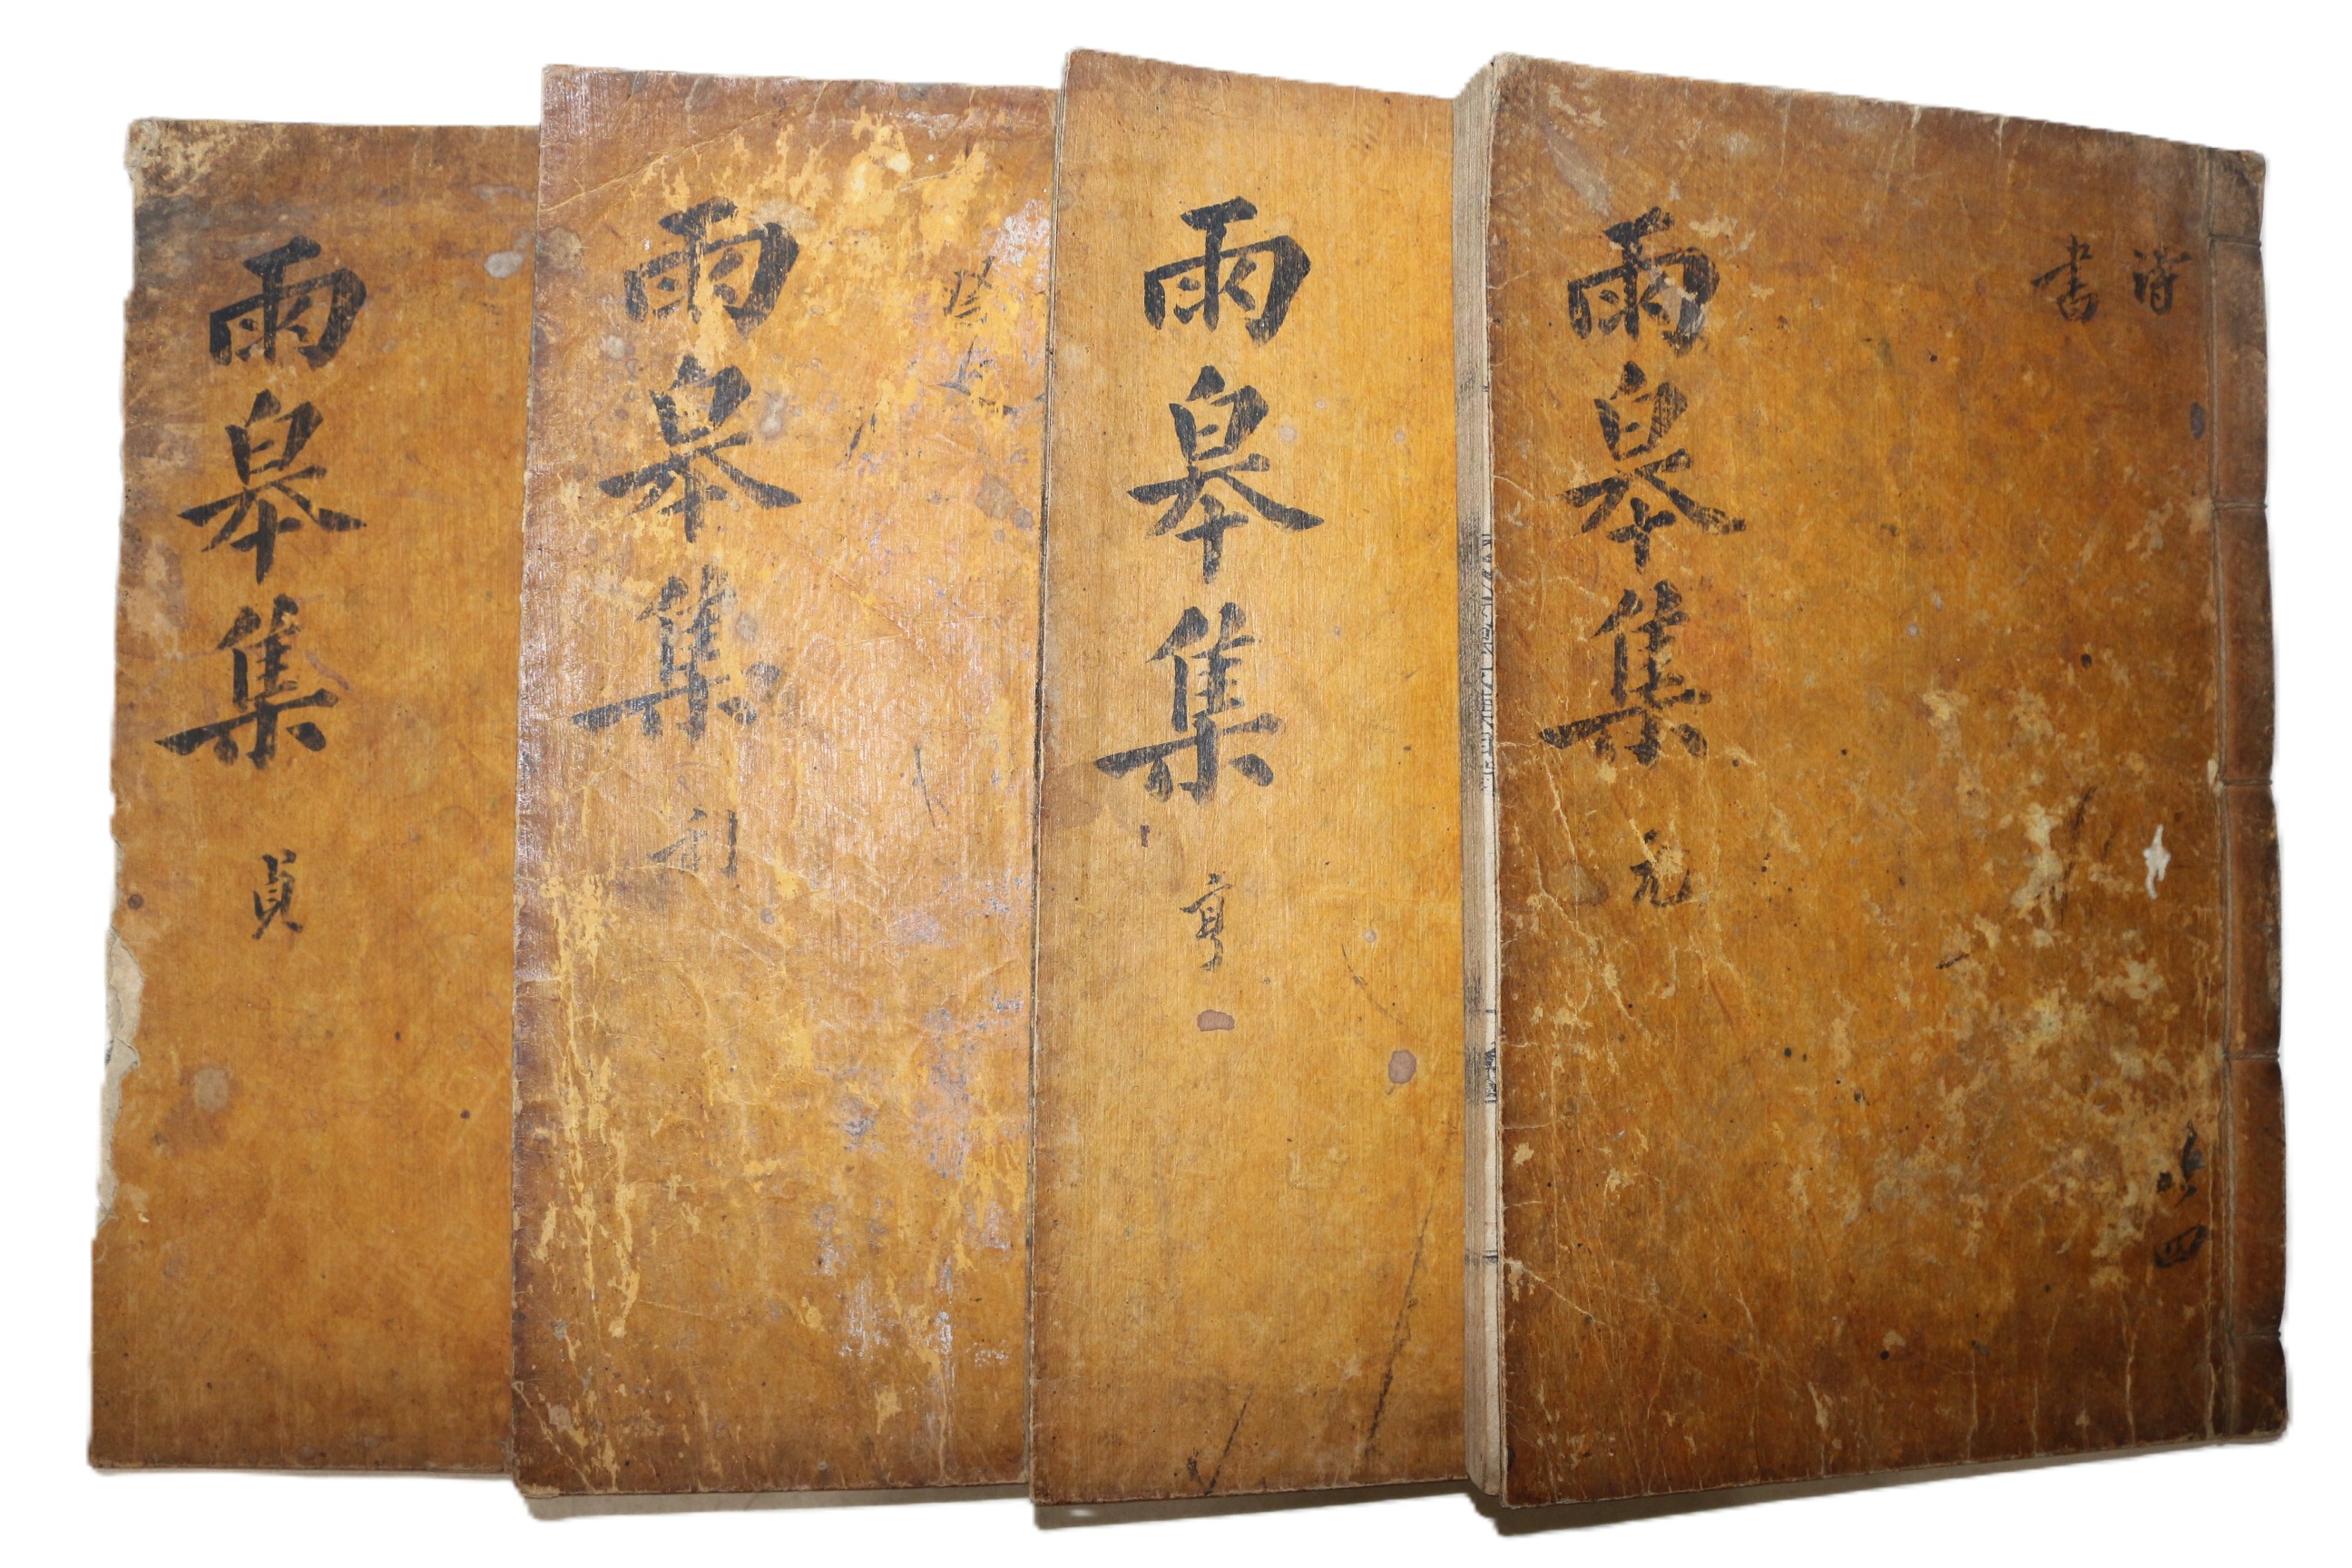 詩
書
共四
雨皐集 元
雨皐集 亨
雨皐集 利
雨皐集 貞